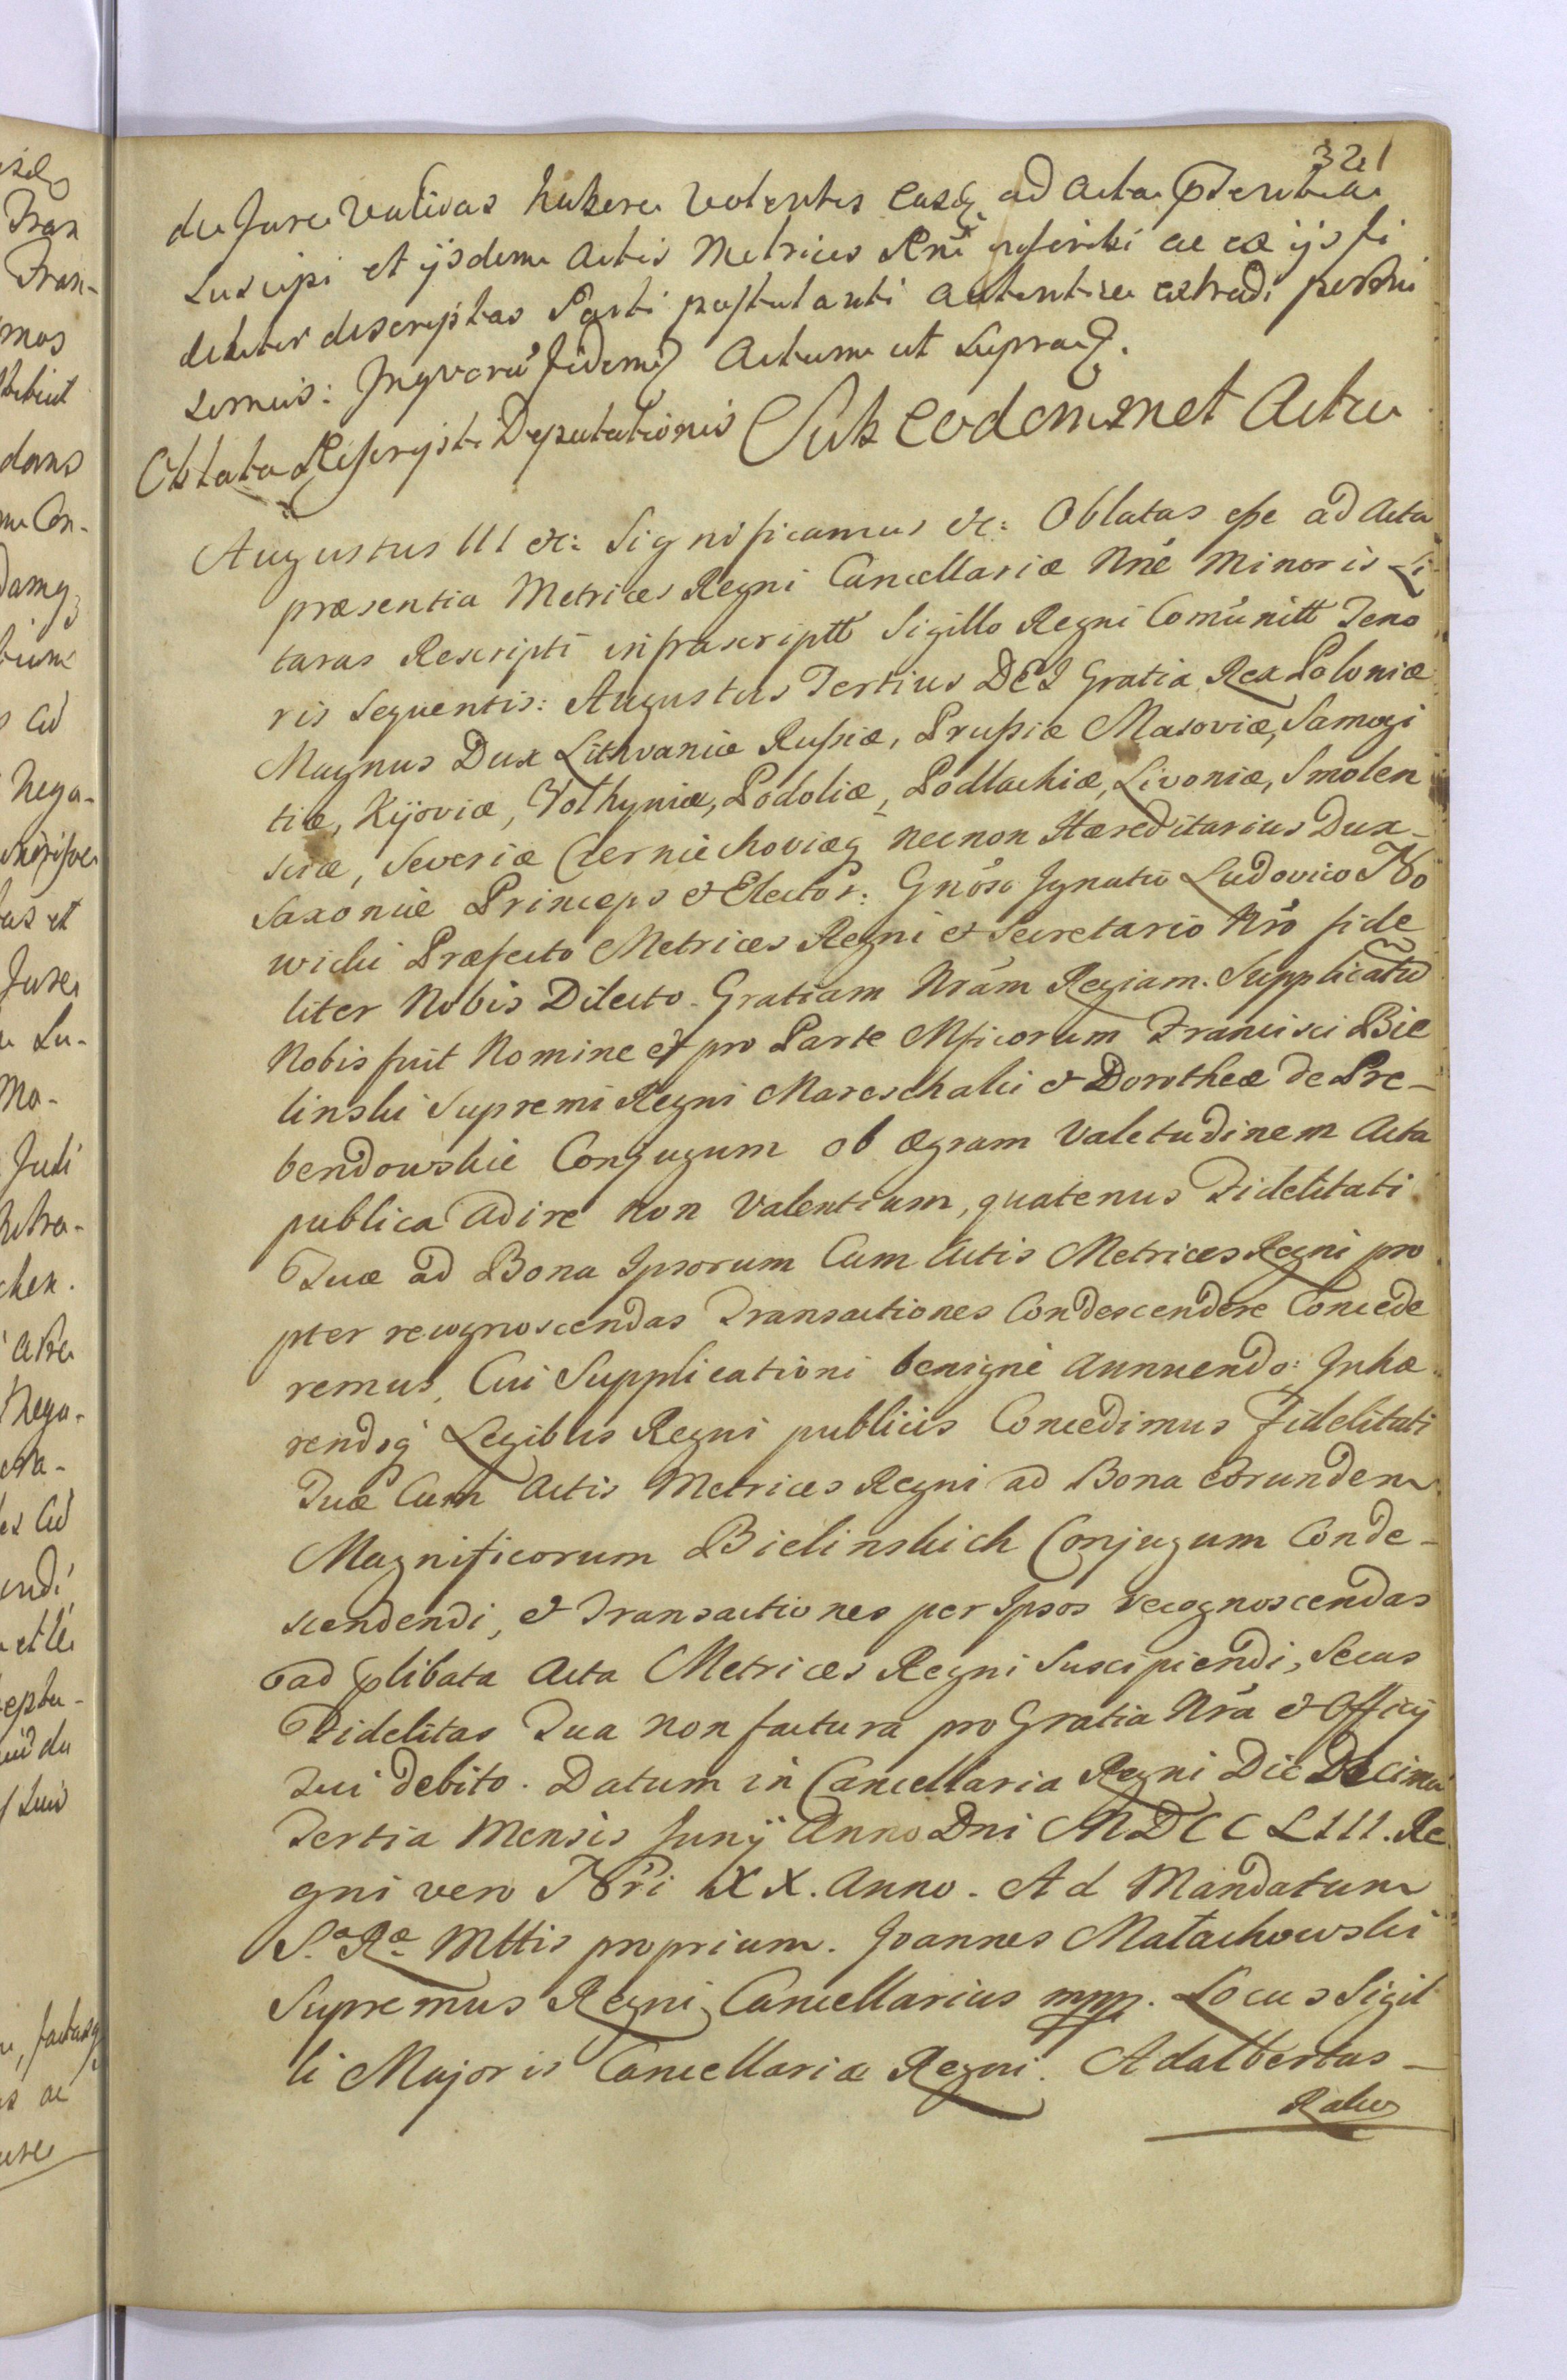 321
de Jure validas habere volentes easq ad Acta pntia
suscipi et ijsdem Actis Metrices Rni inseribi ac ex ijs fi
deliter descriptas Parti postulanti autentice extradi permi
simus: In quorū fidem Actum ut supra.
Oblata Rescripti Deputationis Sub eodemmet Actu
Augustus III &c: Significamus &c: Oblatas eße ad Acta
præsentia Metrices Regni Cancellariæ Nræ Minoris Li
taras Rescripti infrascriptt Sigillo Regni Comūnitt Teno
ris sequentis: Augustus Tertius DEI Gratia Rex Poloniæ
Magnus Dux Lithvaniæ Rußiæ, Prußiæ Masoviæ, Samogi
tiæ, Kijoviæ, Volhyniæ, Podoliæ, Podlachiæ, Livoniæ, Smolen
sciæ, Severiæ Czerniechoviæq necnon Hæreditarius Dux
Saxoniæ Princeps & Elector: Gnōso Ignatio Ludovico No
wicki Præfecto Metrices Regni & Secretario Nrō fide
liter Nobis Dilecto. Gratiam Nrām Regiam. Supplicatū
Nobis fuit Nomine & pro Parte Mficorum Francisci Bie
linski Supremi Regni Mareschalci & Dorotheæ de Pre-
bendowskie Conjugum ob ægram Valetudinem Acta
publica adire non Valentium, quatenus Fidelitati
Tuæ ad Bona Ipsorum Cum Actis Metrices Regni pro
pter recognoscendas Transactiones Condescendere Concede
remus, Cui Supplicationi benigne annuendo: Inhæ
rendoq Legibus Regni publicis Concedimus Fidelitati
Tuæ Cum Actis Metrices Regni ad Bona eorundem
Magnificorum Bielinskich Conjugum Conde-
scendendi, & Transactiones per Ipsos recognoscendas
ad plibata Acta Metrices Regni Suscipiendi, Secus
Fidelitas Tua non factura pro Gratia Nrā & Officij
Tui debito. Datum in Cancellaria Regni Die Decima
Tertia Mensis Junij Anno Dni MDCCLIII. Re
gni vero Nri XX. Anno. Ad Mandatum
S.æ Ræ Mttis proprium. Joannes Małachowski
Supremus Regni Cancellarius mpp. Locus Sigil
li Majoris Cancellariæ Regni. Adalbertus